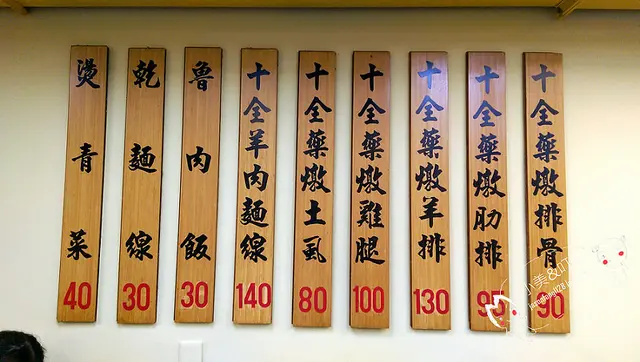 十全藥燉排骨 90
十全藥燉肋排 95
十全藥燉羊排 130
十全藥燉雞腿 100
十全藥燉土虱 80
十全羊肉麵線 140
魯肉飯 30
乾麵線 30
燙青菜 40
小美&